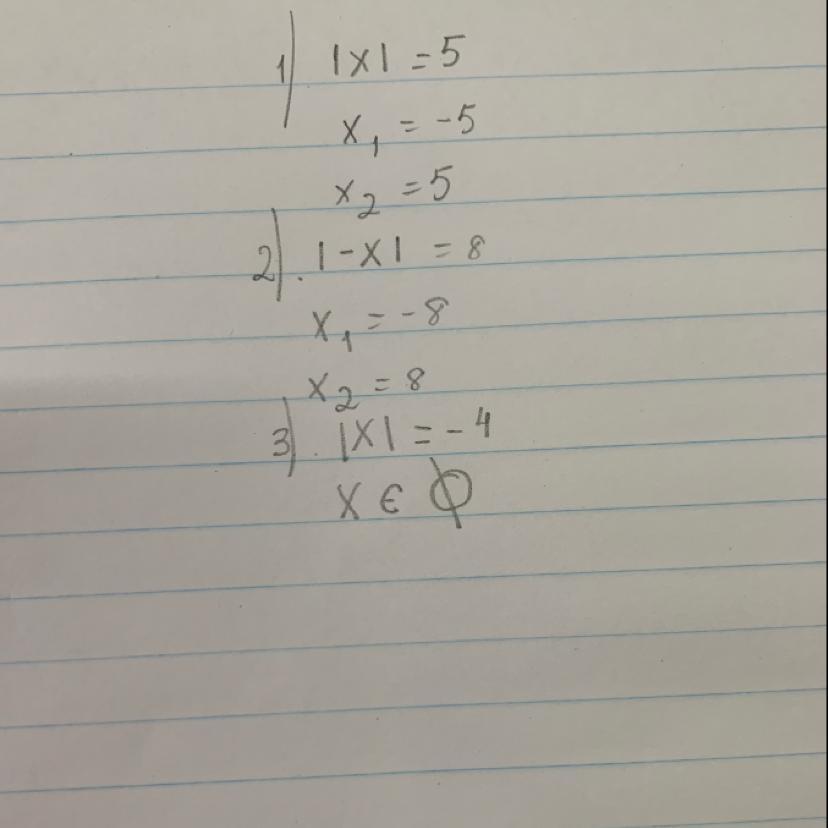 1) |x| = 5
x₁ = -5
x₂ = 5
2). |-x| = 8
x₁ = -8
x₂ = 8
3). |x| = -4
x ∈ ∅